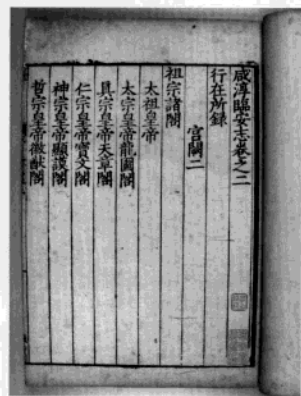 咸淳臨安志卷之二
行在所錄
宮闕二
祖宗諸閣
太祖皇帝
太宗皇帝龍圖閣
真宗皇帝天章閣
仁宗皇帝寶文閣
神宗皇帝顯謨閣
哲宗皇帝徽猷閣